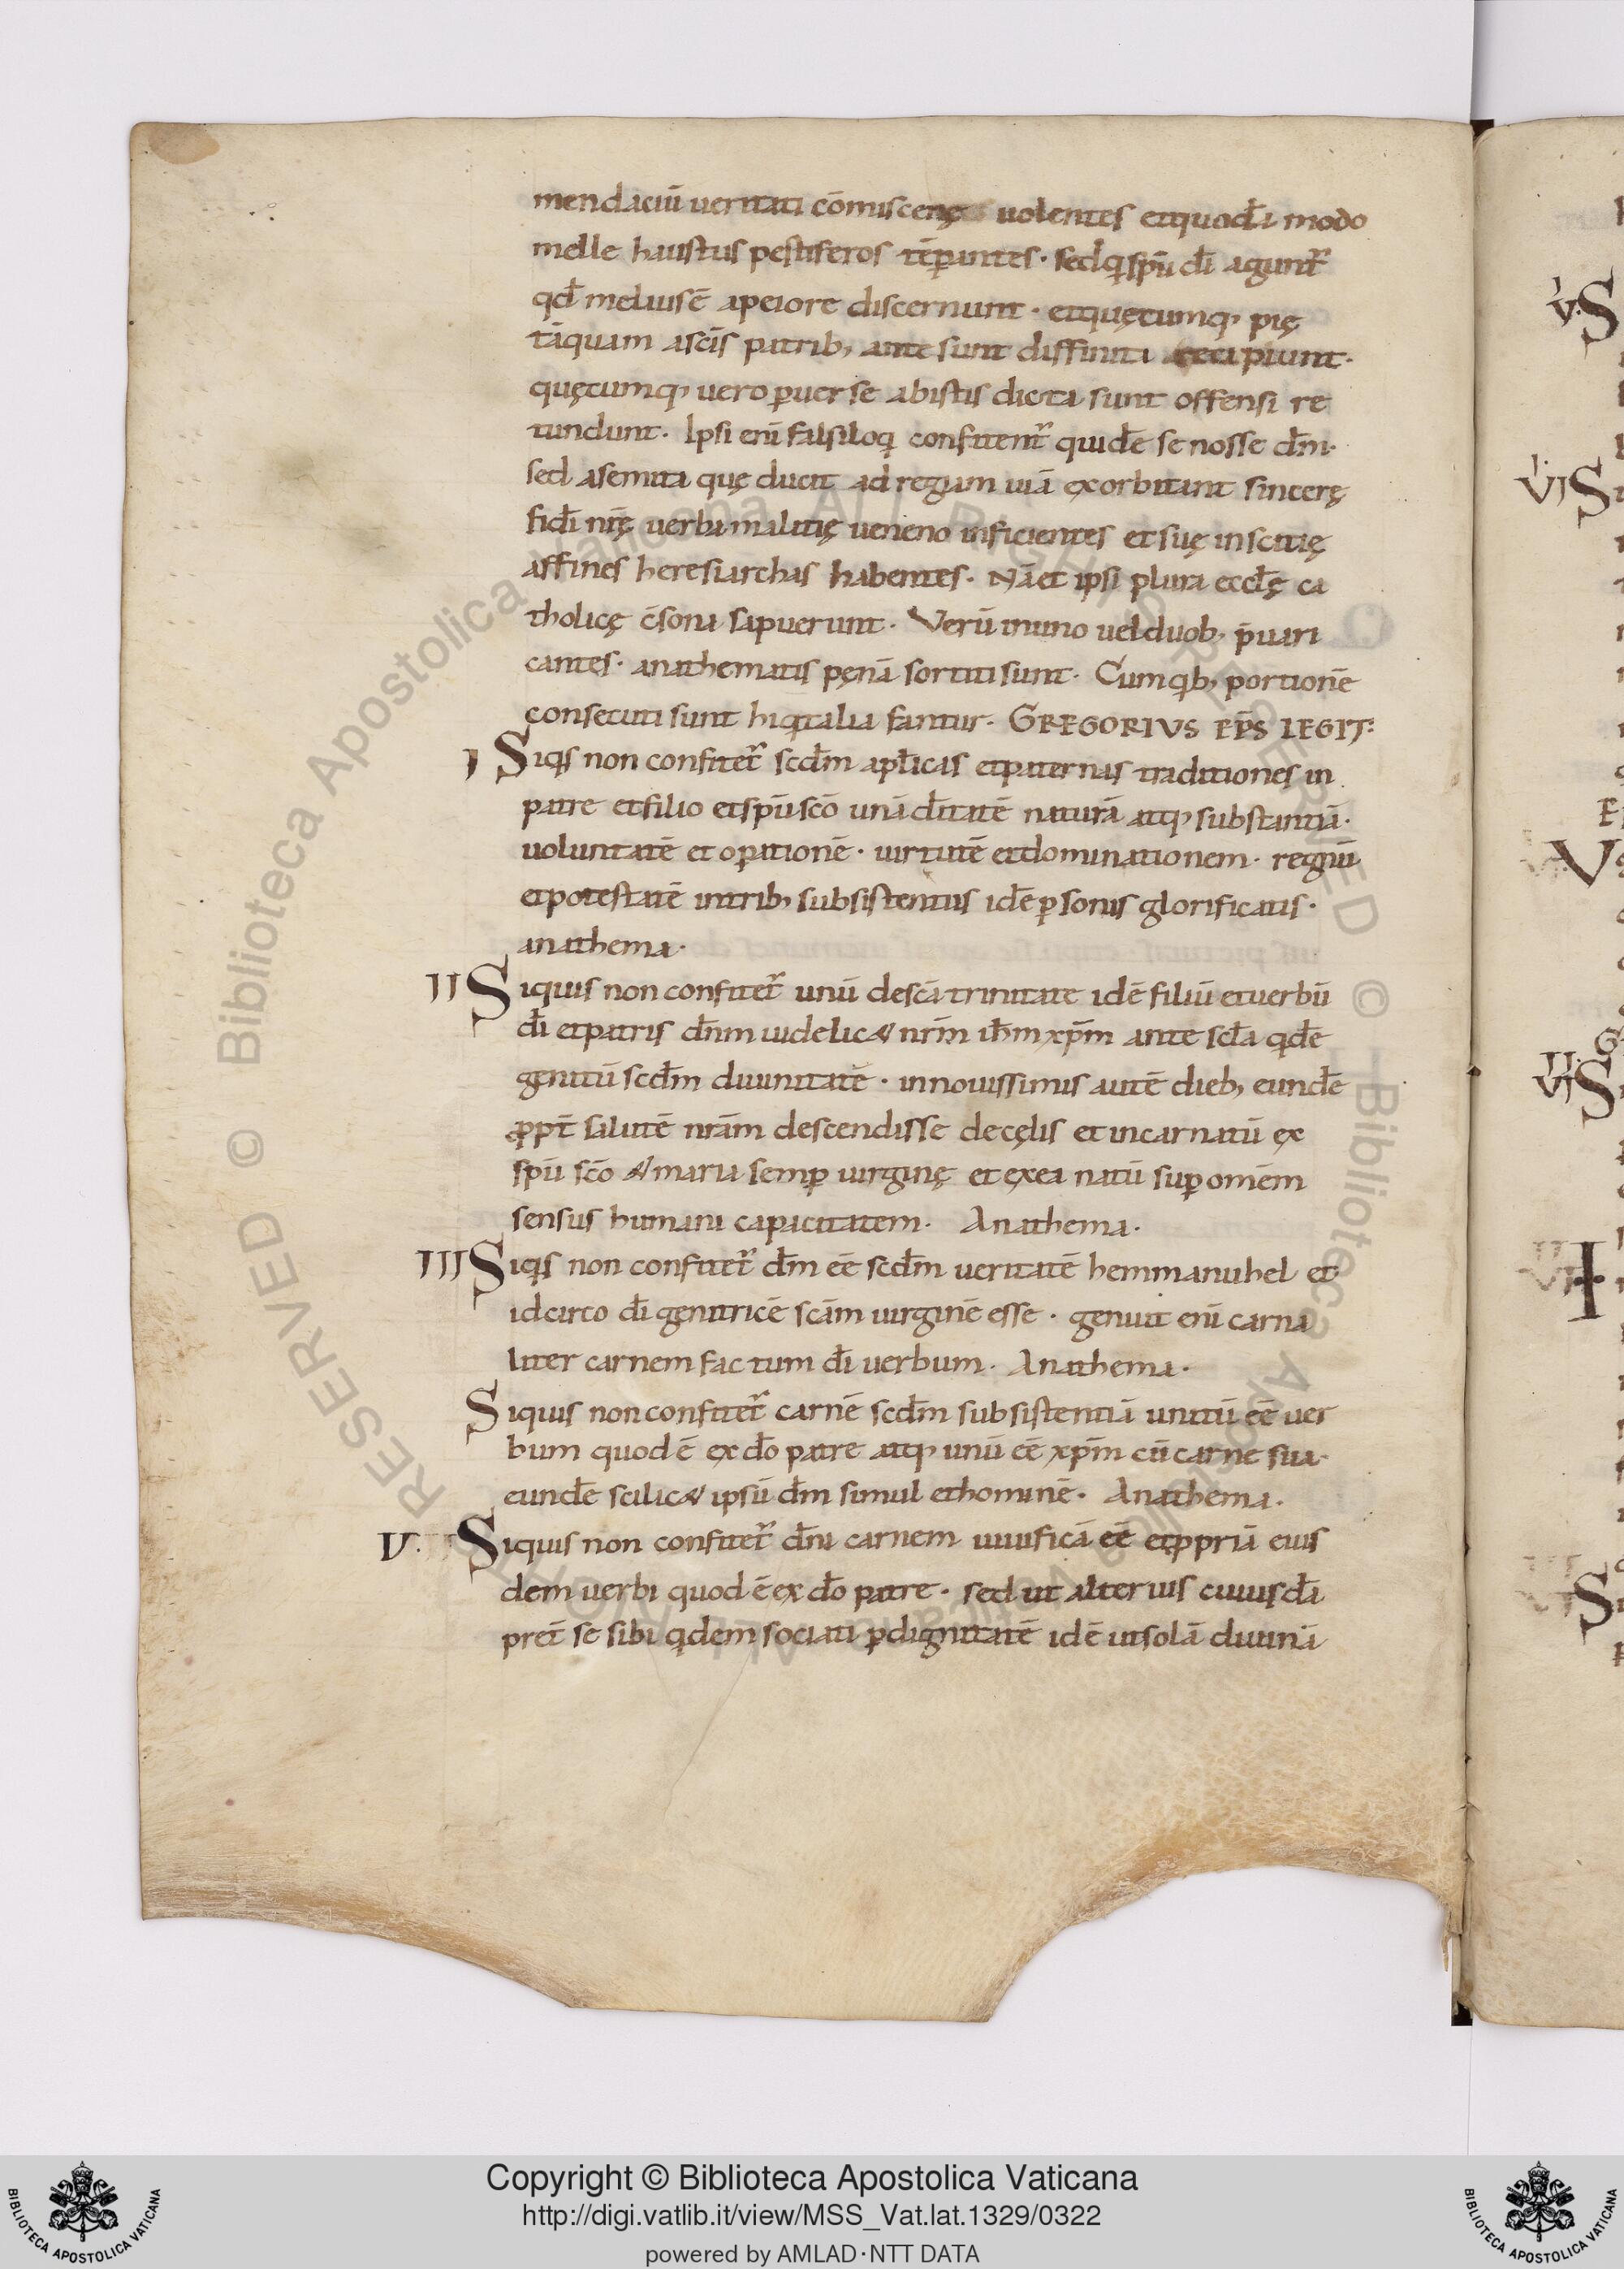 mendaciū ueritati cōmiscerę uolentes et quodā modo
melle haustus pestiferos tēꝑantes · sed qi spū dī agunt᷑
qd̄ melius ē a peiore discernunt · et quęcumq, pię
tāquam a scīs patrib, ante sunt diffinita accipiunt ·
quęcumq, uero ꝑuerse ab istis dicta sunt offensi re
tundunt · Ipsi enī falsiloqi confitent᷑ quidē se nosse dm̄ ·
sed a semita quę ducit ad regiam uiā exorbitant sincerę
fidi nrę̄ uerba malitię ueneno inficientes et suę inscitię
affines heresiarchas habentes · Nā et ipsi plura eccl̄ę ca
tholicę c̄sona sapuerunt · Verū in uno uel duob, p̄uari
cantes · anathematis pęnā sortiti sunt · Cum qib, portionē
consecuti sunt hi qi talia fantur · GREGORIVS EP̄S LEGIT:
I Siqis non confitet᷑ scdm̄ apl̄icas et paternas traditiones in
patre et filio et spū scō unā dītatē naturā atq, substantiā ·
uoluntatē et oꝑationē · uirtutē et dominationem · regnū
et potestatē in trib, subsistentiis idē ꝑsonis glorificatis ·
anathema ·
II Siquis non confitet᷑ unū de scā trinitate idē filiū et uerbū
dī et patris dnm̄ uidelic& nrm̄ ihm̄ xpm̄ ante scl̄a qidē
genitū scdm̄ diuinitatē · in nouissimis autē dieb, eundē
ꝓpt̄ salutē nrām descendisse de cęlis et incarnatū ex
spū scō & maria semꝑ uirginę et ex ea natū suꝑ omēm
sensus humani capacitatem · Anathema ·
III Siqis non confitet᷑ dm̄ eē scdm̄ ueritatē hemmanuhel et
idcirco dī genitricē scām uirginē esse · genuit enī carna
liter carnem factum dī uerbum · Anathema ·
Siquis non confitet᷑ carnē scdm̄ subsistentiā unitū eē uer
bum quod ē ex dō patre atq, unū eē xpm̄ cū carne sua ·
eundē scilic& ipsū dm̄ simul et hominē · Anathema ·
V · Siquis non confitet᷑ dnī carnem uiuificā eē et ꝓpriā eius
dem uerbi quod ē ex dō patre · sed ut alterius cuiusdā
pret̄ se sibi qidem sociati ꝑ dignitatē idē ut solā diuinā
© Biblioteca Apostolica Vaticana ALL RIGHTS RESERVED
Copyright © Biblioteca Apostolica Vaticana
http://digi.vatlib.it/view/MSS_Vat.lat.1329/0322
powered by AMLAD·NTT DATA
BIBLIOTECA APOSTOLICA VATICANA
BIBLIOTECA APOSTOLICA VATICANA